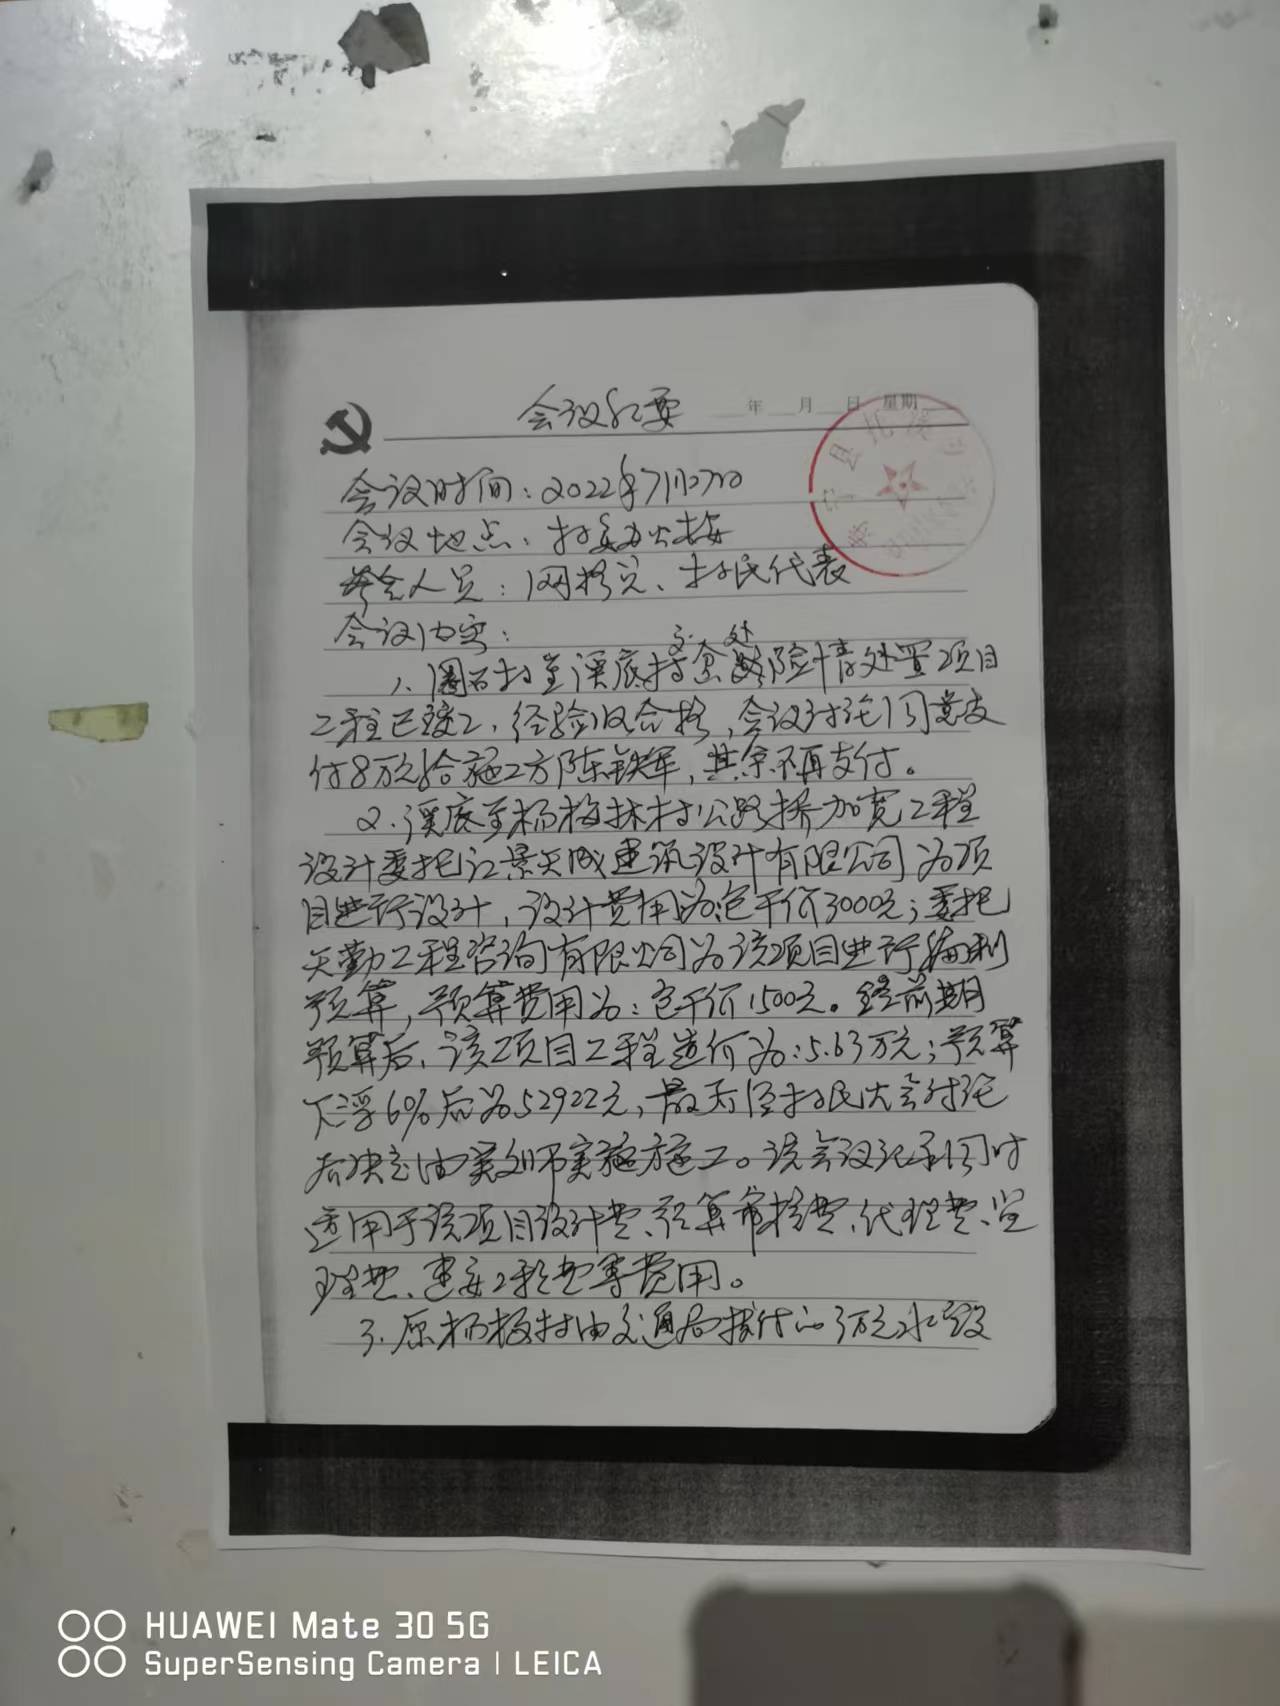 会议纪要
年 月 日 星期
会议时间：2022年7月27日
会议地点：村委办公楼
参会人员：网格员、村民代表
会议内容：
1、圈石村至溪底村 险情处置项目
工程已竣工，经验收合格，会议讨论同意支
付8万元给施工方陈铁军，其余不再支付。
2、溪底至杨梅林村公路桥加宽工程
设计委托江景天成建筑设计有限公司为项
目进行设计，设计费用为：包干价3000元；委托
天勤工程咨询有限公司为该项目进行编制
预算，预算费用为：包干价1500元。经前期
预算后，该项目工程造价为：5.63万元；预算
下浮6%后为52922元，最后经村民大会讨论
后决定由 实施施工。该会议记录同时
适用于该项目设计费、预算审核费、代理费、监
理费、建安工程费等费用。
3、原杨梅村由交通局拨付的3万元水毁
HUAWEI Mate 30 5G
SuperSensing Camera | LEICA